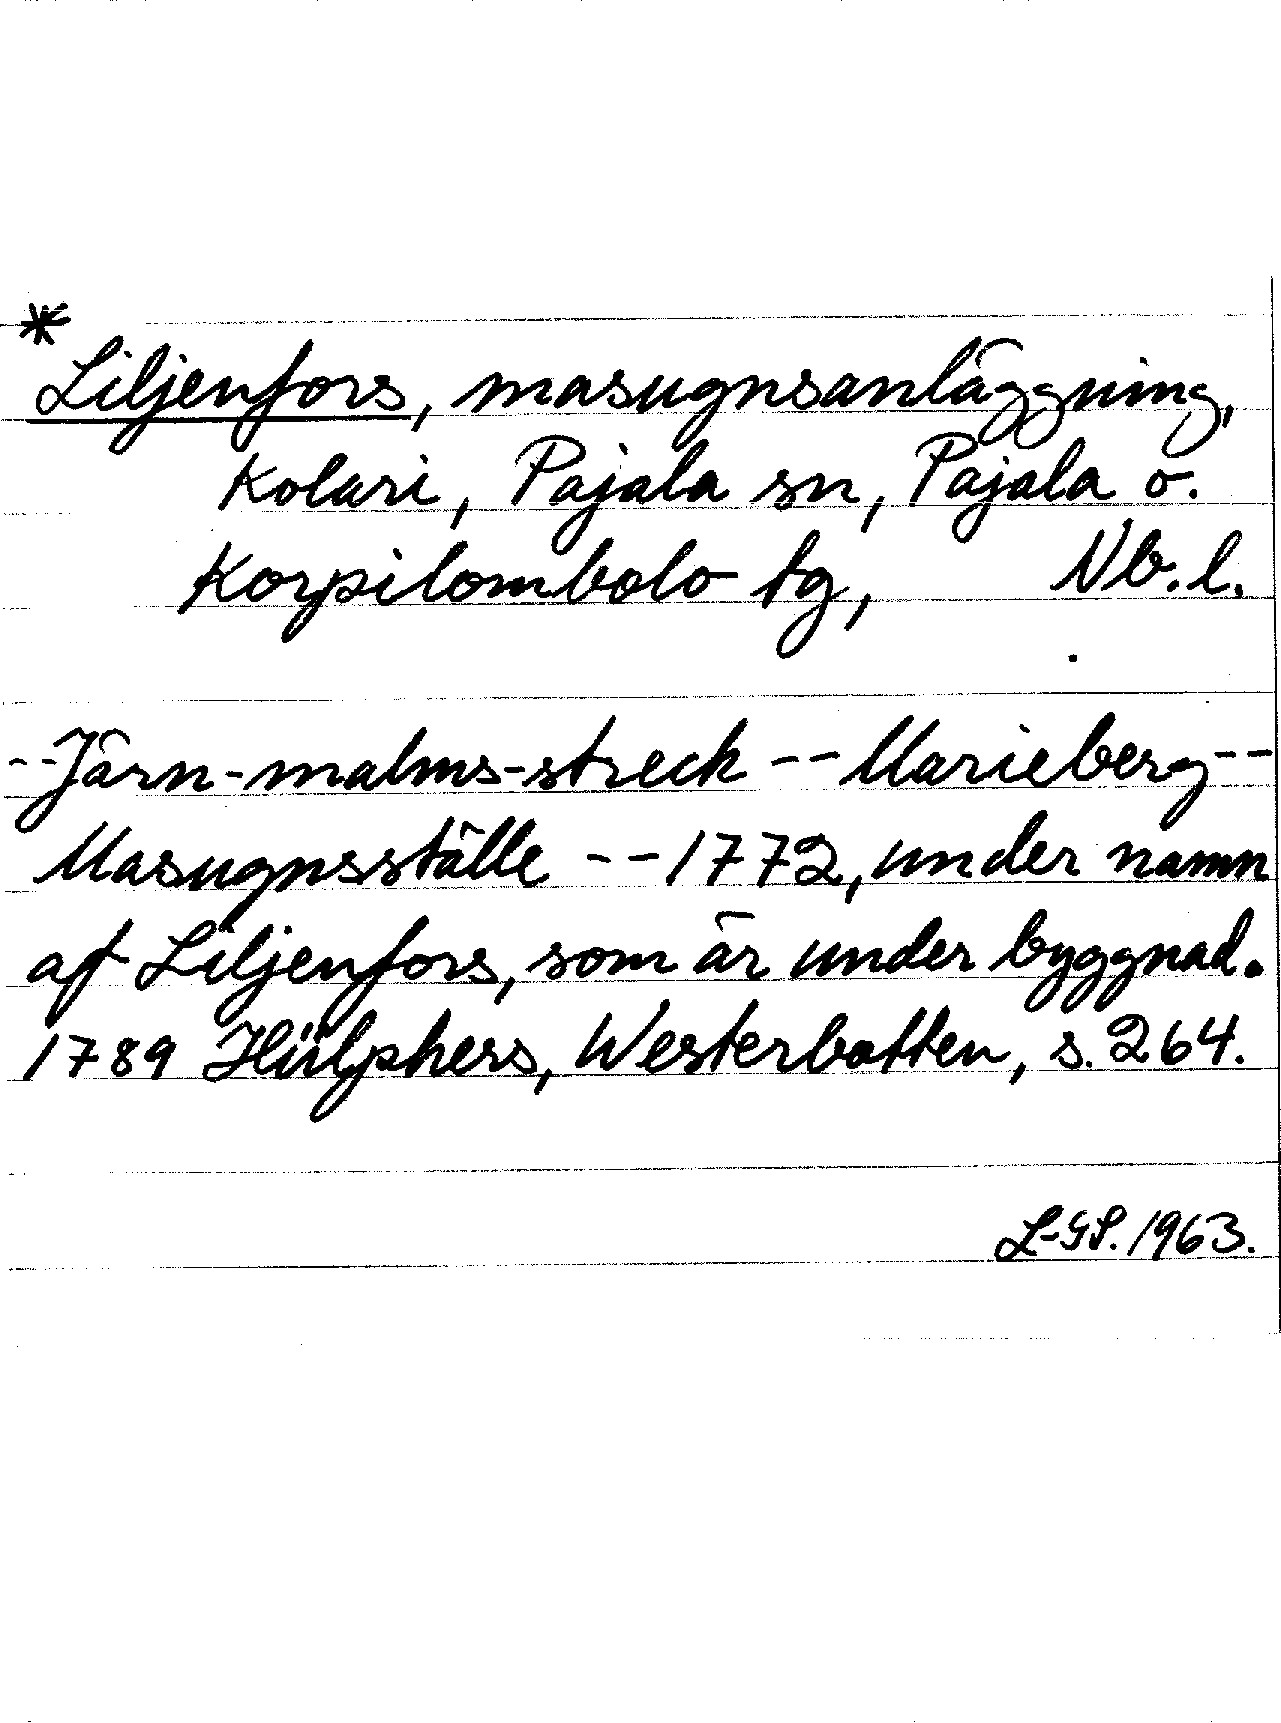 *
Liljenfors, masugnsanläggning,
Kolari, Pajala sn, Pajala o.
Korpilombolo tg, Nb.l.
--Järn-malms-streck -- Marieberg --
Masugnsställe -- 1772, under namn
af Liljenfors, som är under byggnad.
1789 Hülphers, Westerbotten, s. 264.
L-GS. 1963.